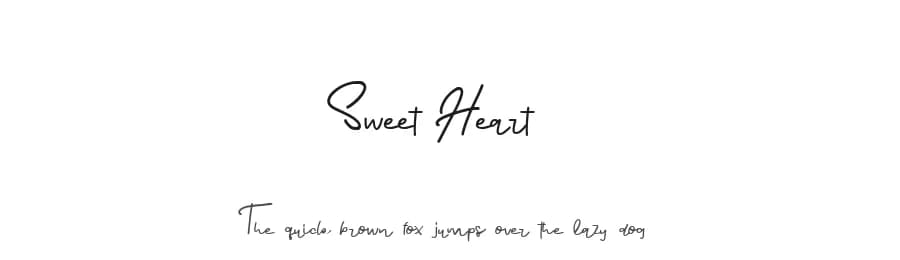 Sweet Heart
The quick, brown fox jumps over the lazy dog